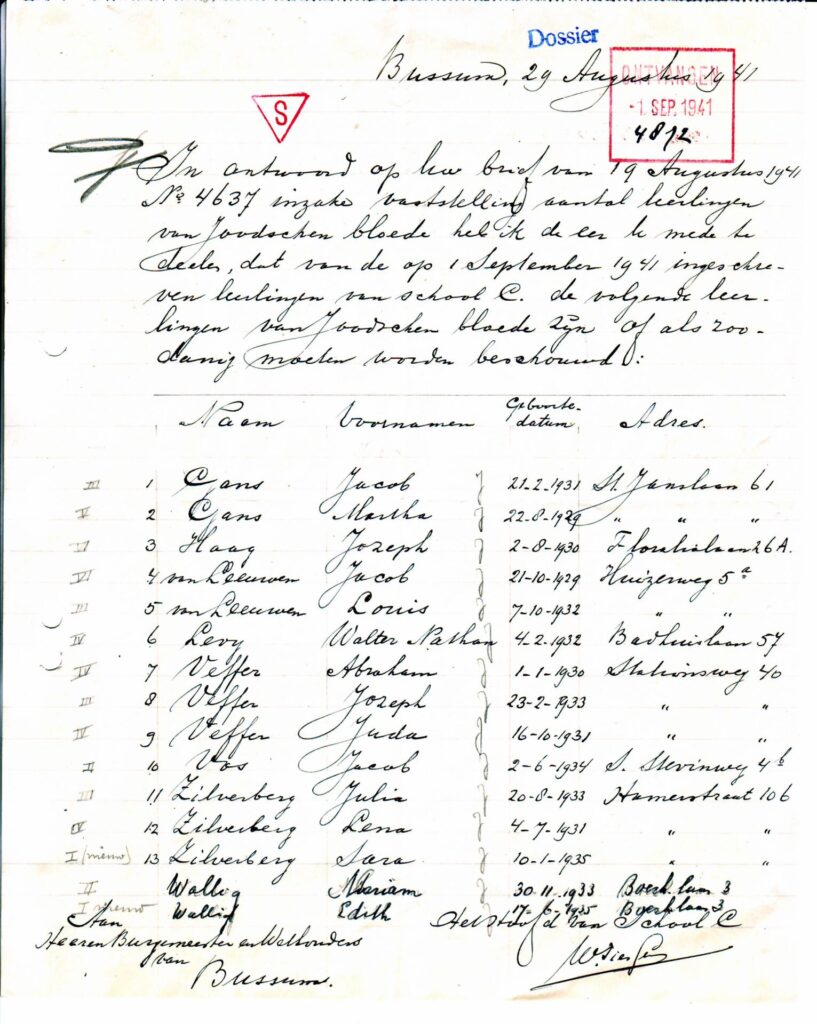 Dossier
Bussum, 29 Augustus 1941
ONTVANGEN
-1. SEP. 1941
4812
S
In antwoord op Uw brief van 19 Augustus 1941
No 4637 inzake vaststelling aantal leerlingen
van Joodschen bloede heb ik de eer U mede te
deelen, dat van de op 1 September 1941 ingeschre-
ven leerlingen van school C. de volgende leer-
lingen van Joodschen bloede zijn of als zoo-
danig moeten worden beschouwd:
Naam Voornamen Geboorte-datum Adres.
III 1 Gans Jacob J 21-2-1931 St. Janslaan 61
V 2 Gans Martha J 22-8-1929 " " "
VI 3 Haag Jozeph J 2-8-1930 Floralialaan 26A.
VI 4 van Leeuwen Jacob J 21-10-1929 Huizerweg 5a
III 5 van Leeuwen Louis J 7-10-1932 " "
IV 6 Levy Walter Nathan J 4-2-1932 Badhuislaan 57
IV 7 Veffer Abraham J 1-1-1930 Stationsweg 40
III 8 Veffer Jozeph J 23-2-1933 " "
IV 9 Veffer Juda J 16-10-1931 " "
II 10 Vos Jacob J 2-6-1934 S. Stevinweg 4b
III 11 Zilverberg Julia J 20-8-1933 Hamerstraat 106
IV 12 Zilverberg Lena J 4-7-1931 " "
I (nieuw) 13 Zilverberg Sara J 10-1-1935 " "
II Wallig Miriam 30.11.1933 3
I nieuw Wallig Edith 17-6-1935 3
Aan
Heeren Burgemeester en Wethouders
van
Bussum.
Het Hoofd van School C